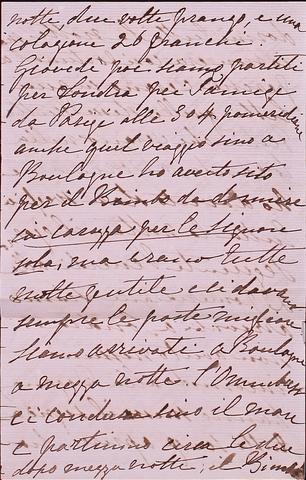 notte, due volte pranzo, e una
colazione 26 franchi.
Giovedi poi siamo partiti
per Londra pei Tamigi
da Parigi alle 3 o 4 pomeridiane
anche quel viaggio sino a
Boulogne ho avuto sito
per il Bimbo da dormire
in carozza per le Signore
sola, ma erano tutte
molto gentile e ci davano
sempre le poste migliori
siamo arrivati a Boulogne
a mezza notte l'Omnibus
ci condusse sino il mare
e partimmo circa le due
dopo mezza notte, il Bimbo